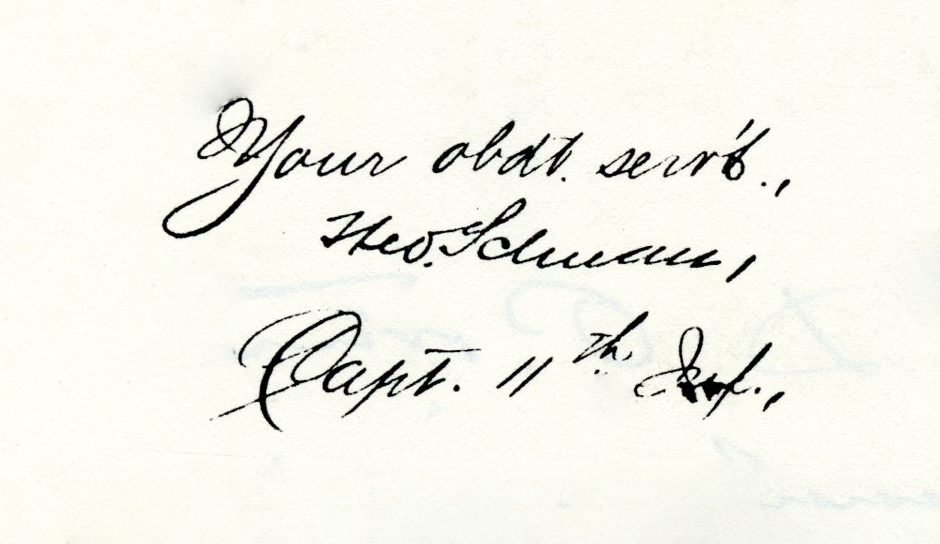 Your obdt. serv't.,
Theo. Schwan,
Capt. 11th. Inf.,